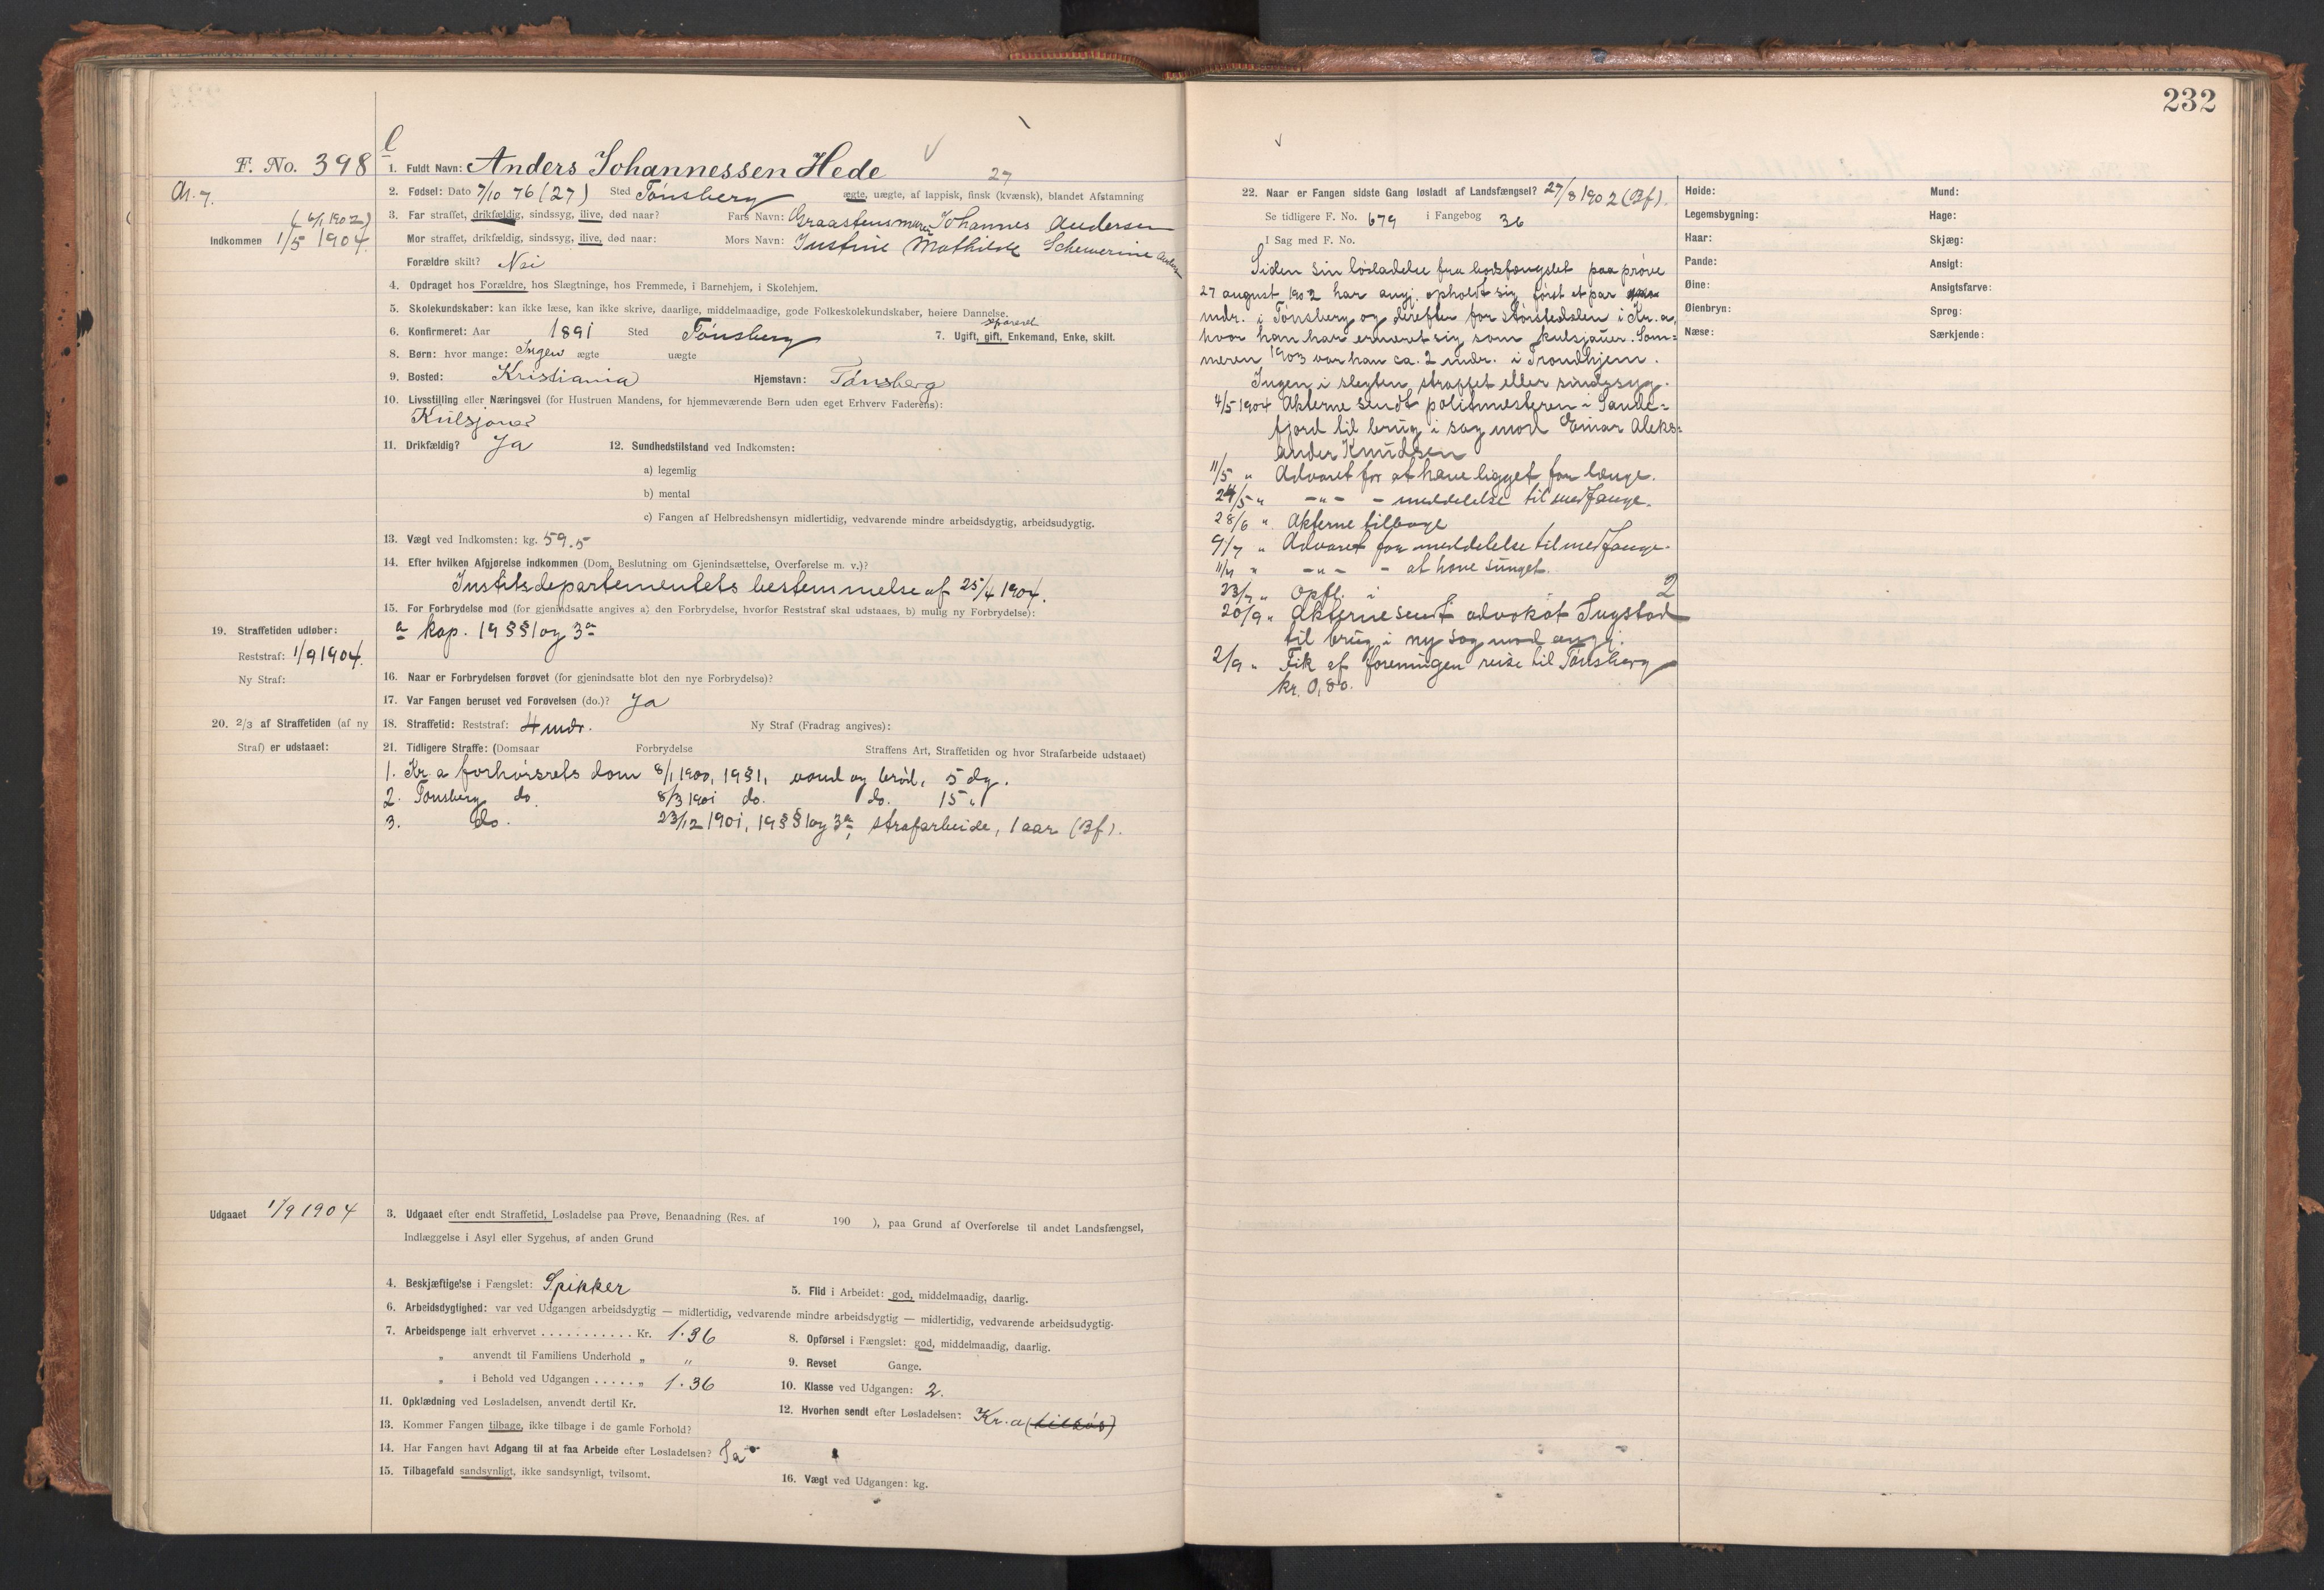 232
l
F. No. 398
1. Fuldt Navn: Anders Johannessen Hede
27
Ar. 7.
2. Fødsel: Dato 7/10 76 (27) Sted Tønsberg ægte, uægte, af lappisk, finsk (kvænsk), blandet Afstamning
(6/1 1902)
3. Far straffet, drikfældig, sindssyg, ilive, død naar? Fars Navn: Graastensmurer Johannes Andersen
Indkommen 1/5 1904.
Mor straffet, drikfældig, sindssyg, ilive, død naar: Mors Navn: Justine Mathilde Schewerine
Forældre skilt? Nei
4. Opdraget hos Forældre, hos Slægtninge, hos Fremmede, i Barnehjem, i Skolehjem.
5. Skolekundskaber: kan ikke læse, kan ikke skrive, daarlige, middelmaadige, gode Folkeskolekundskaber, høiere Dannelse.
separeret
6. Konfirmeret: Aar 1891 Sted Tønsberg 7. Ugift, gift, Enkemand, Enke, skilt.
8. Børn: hvor mange: Ingen ægte uægte
9. Bosted: Kristiania Hjemstavn: Tønsberg
10. Livsstilling eller Næringsvei (for Hustruen Mandens, for hjemmeværende Børn uden eget Erhverv Faderens):
Kulsjouer
11. Drikfældig? Ja 12. Sundhedstilstand ved Indkomsten:
a) legemlig
b) mental
c) Fangen af Helbredshensyn midlertidig, vedvarende mindre arbeidsdygtig, arbeidsudygtig.
13. Vægt ved Indkomsten: kg. 59.5
14. Efter hvilken Afgjørelse indkommen (Dom, Beslutning om Gjenindsættelse, Overførelse m. v.)?
Justitsdepartementets bestemmelse af 25/4 1904.
15. For Forbrydelse mod (for gjenindsatte angives a) den Forbrydelse, hvorfor Reststraf skal udstaaes, b) mulig ny Forbrydelse):
a kap. 19 §§ 1 og 3a
19. Straffetiden udløber:
Reststraf: 1/9 1904.
Ny Straf:
16. Naar er Forbrydelsen forøvet (for gjenindsatte blot den nye Forbrydelse)?
17. Var Fangen beruset ved Forøvelsen (do.)? Ja
20. 2/3 af Straffetiden (af ny
Straf) er udstaaet:
18. Straffetid: Reststraf: 4 mdr. Ny Straf (Fradrag angives):
21. Tidligere Straffe: (Domsaar Forbrydelse Straffens Art, Straffetiden og hvor Strafarbeide udstaaet)
1. Kr.a forhørsrets dom 8/1 1900, 19 § 1, vand og brød, 5 dg.
2. Tønsberg do. 8/3 1901 do. do. 15 "
3. do. 23/12 1901, 19 §§ 1 og 3a, strafarbeide, 1 aar (Bf).
Udgaaet 1/9 1904
3. Udgaaet efter endt Straffetid, Løsladelse paa Prøve, Benaadning (Res. af 190 ), paa Grund af Overførelse til andet Landsfængsel,
Indlæggelse i Asyl eller Sygehus, af anden Grund
4. Beskjæftigelse i Fængslet: Spikker 5. Flid i Arbeidet: god, middelmaadig, daarlig.
6. Arbeidsdygtighed: var ved Udgangen arbeidsdygtig — midlertidig, vedvarende mindre arbeidsdygtig — midlertidig, vedvarende arbeidsudygtig.
7. Arbeidspenge ialt erhvervet ........... Kr. 1.36 8. Opførsel i Fængslet: god, middelmaadig, daarlig.
„ anvendt til Familiens Underhold „ " 9. Revset Gange.
„ i Behold ved Udgangen ..... „ 1.36 10. Klasse ved Udgangen: 2.
11. Opklædning ved Løsladelsen, anvendt dertil Kr. 12. Hvorhen sendt efter Løsladelsen: Kr.a (tilsøs)
13. Kommer Fangen tilbage, ikke tilbage i de gamle Forhold?
14. Har Fangen havt Adgang til at faa Arbeide efter Løsladelsen? Ja
15. Tilbagefald sandsynligt, ikke sandsynligt, tvilsomt. 16. Vægt ved Udgangen: kg.
22. Naar er Fangen sidste Gang løsladt af Landsfængsel? 27/8 1902 (Bf).
Se tidligere F. No. 679 i Fangebog 36
I Sag med F. No.
Siden sin løsladelse fra bodsfængslet paa prøve
27 august 1902 har angj. opholdt sig først et par
mdr. i Tønsberg og derefter for størstedelen i Kr.a,
hvor han har ernæret sig som kulsjauer. Som=
meren 1903 var han ca. 2 mdr. i Trondhjem.
Ingen i slegten straffet eller sindssyg.
4/5 1904 Akterne sendt politimesteren i Sande=
fjord til brug i sag mod Einar Aleks=
ander Knudsen
11/5 " Advaret for at have ligget for længe.
24/5 " -"- - meddelelse til medfange.
28/6 " Akterne tilbage
9/7 " Advaret for meddelelse til medfange.
11/7 " -"- - at have sunget.
23/7 " Opfl. i 2
20/9 " Akterne sendt advokat Tugstad
til brug i ny sag mod angj.
2/9 " Fik af foreningen reise til Tønsberg
kr. 0,80.
Høide:
Legemsbygning:
Haar:
Pande:
Øine:
Øienbryn:
Næse:
Mund:
Hage:
Skjæg:
Ansigt:
Ansigtsfarve:
Sprog:
Særkjende: